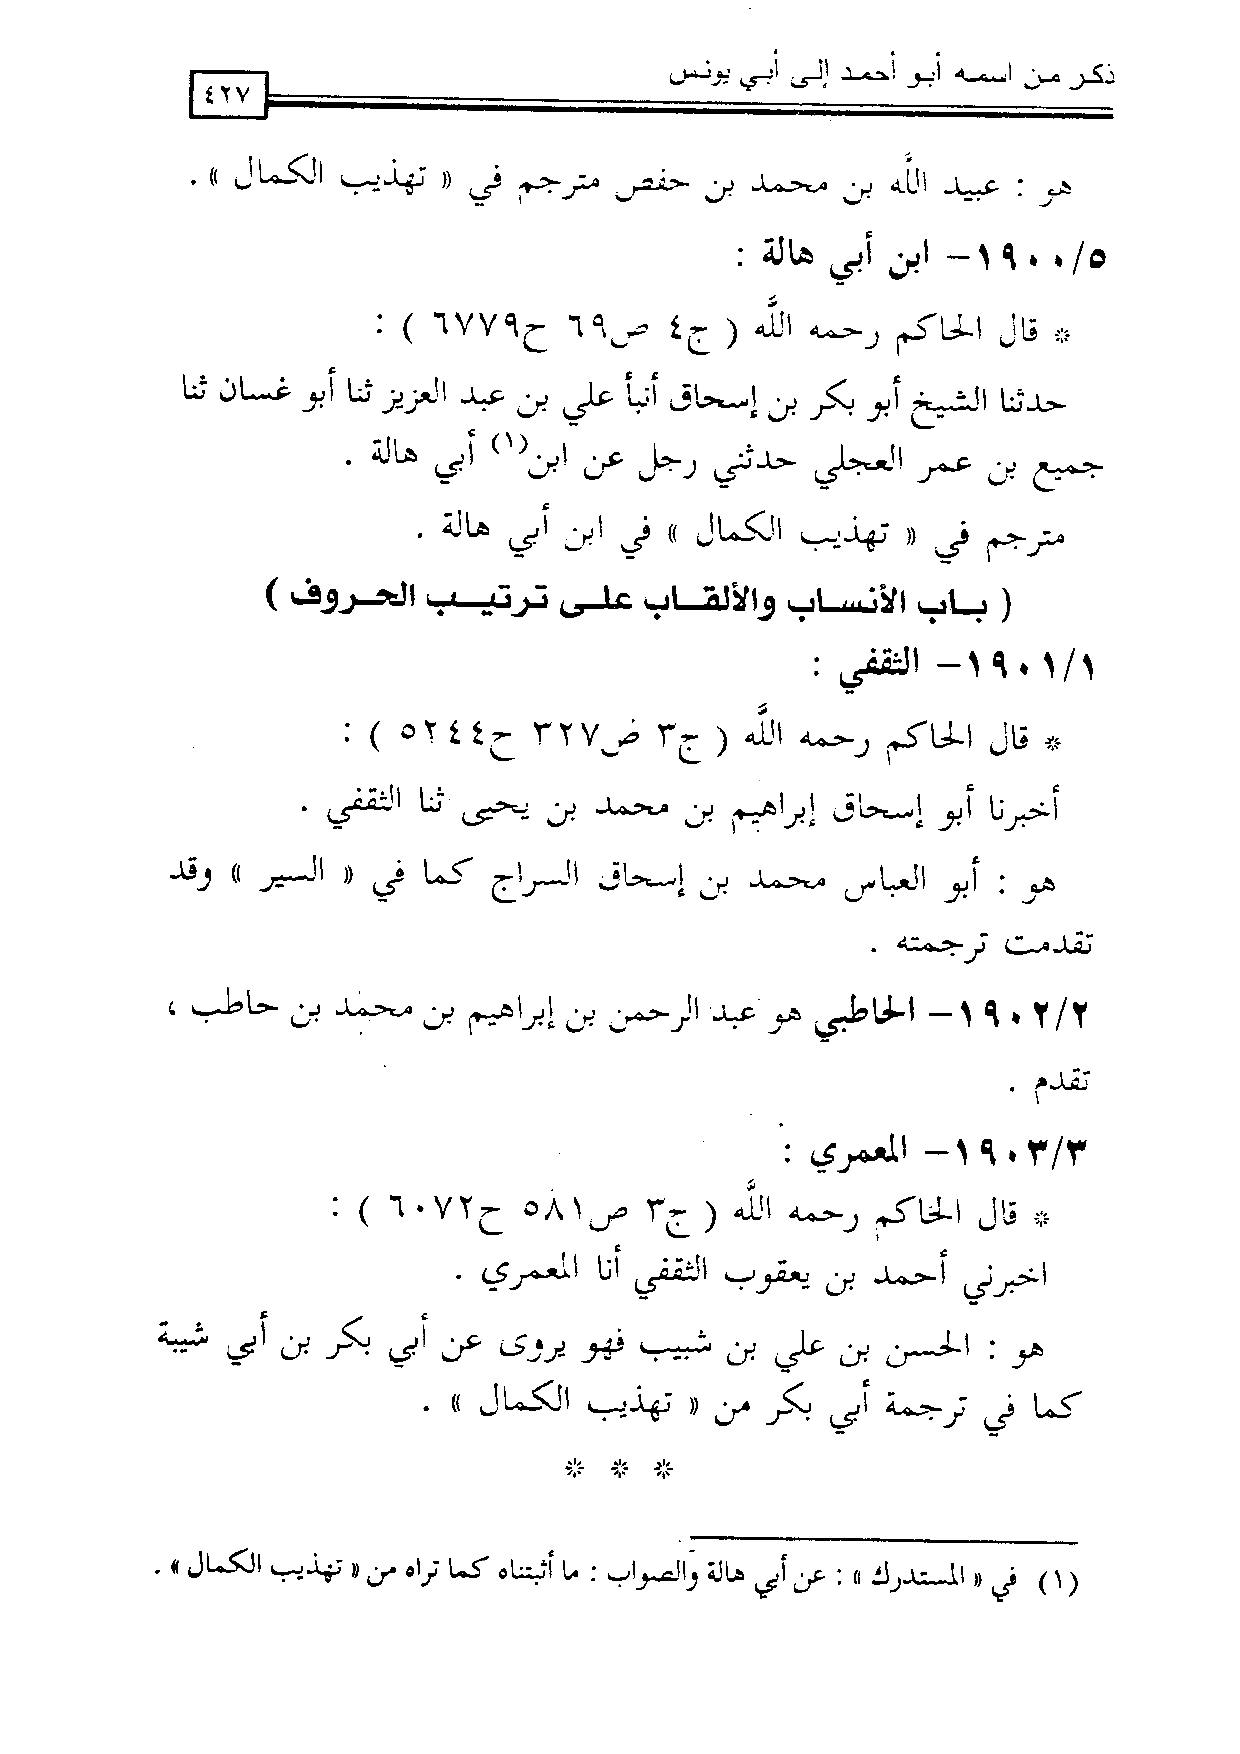 ذكر من اسمه أبو أحمد إلى أبي يونس
٤٢٧
هو : عبيد اللَّه بن محمد بن حفص مترجم في « تهذيب الكمال » .
١٩٠٠/٥- ابن أبي هالة :
* قال الحاكم رحمه اللَّه ( ج٤ ص٦٩ ح٦٧٧٩ ) :
حدثنا الشيخ أبو بكر بن إسحاق أنبأ علي بن عبد العزيز ثنا أبو غسان ثنا
جميع بن عمر العجلي حدثني رجل عن ابن(١) أبي هالة .
مترجم في « تهذيب الكمال » في ابن أبي هالة .
( باب الأنساب والألقاب على ترتيب الحروف )
١٩٠١/١- الثقفي :
* قال الحاكم رحمه اللَّه ( ج٣ ض٣٢٧ ح٥٢٤٤ ) :
أخبرنا أبو إسحاق إبراهيم بن محمد بن يحيى ثنا الثقفي .
هو : أبو العباس محمد بن إسحاق السراج كما في « السير » وقد
تقدمت ترجمته .
١٩٠٢/٢- الحاطبي هو عبد الرحمن بن إبراهيم بن محمد بن حاطب ،
تقدم .
١٩٠٣/٣- المعمري :
* قال الحاكم رحمه اللَّه ( ج٣ ص٥٨١ ح٦٠٧٢ ) :
اخبرني أحمد بن يعقوب الثقفي أنا المعمري .
هو : الحسن بن علي بن شبيب فهو يروى عن أبي بكر بن أبي شيبة
كما في ترجمة أبي بكر من « تهذيب الكمال » .
* * *
(١) في « المستدرك » : عن أبي هالة والصواب : ما أثبتناه كما تراه من « تهذيب الكمال » .